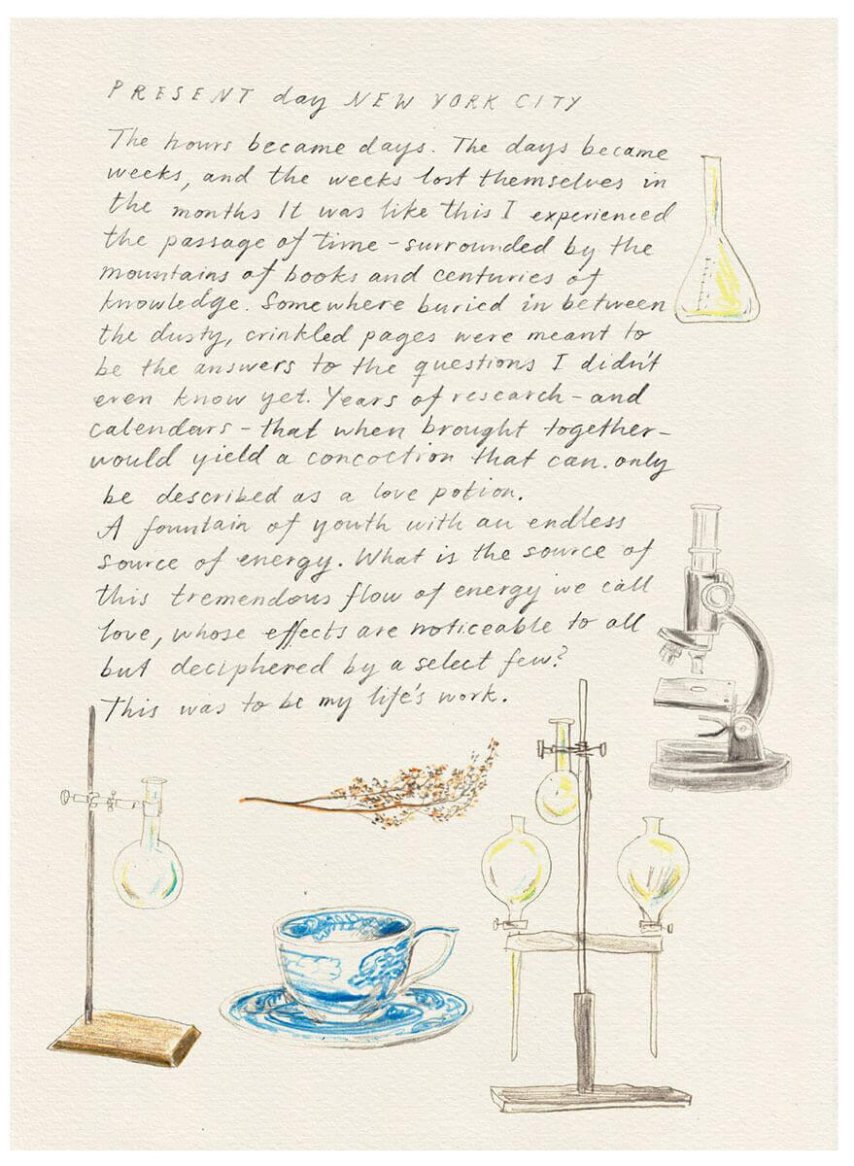 PRESENT day NEW YORK CITY
The hours became days. The days became
weeks, and the weeks lost themselves in
the months It was like this I experienced
the passage of time - surrounded by the
mountains of books and centuries of
knowledge. Somewhere buried in between
the dusty, crinkled pages were meant to
be the answers to the questions I didn't
even know yet. Years of research - and
calendars - that when brought together -
would yield a concoction that can. only
be described as a love potion.
A fountain of youth with an endless
source of energy. What is the source of
this tremendous flow of energy we call
love, whose effects are noticeable to all
but deciphered by a select few?
This was to be my life's work.